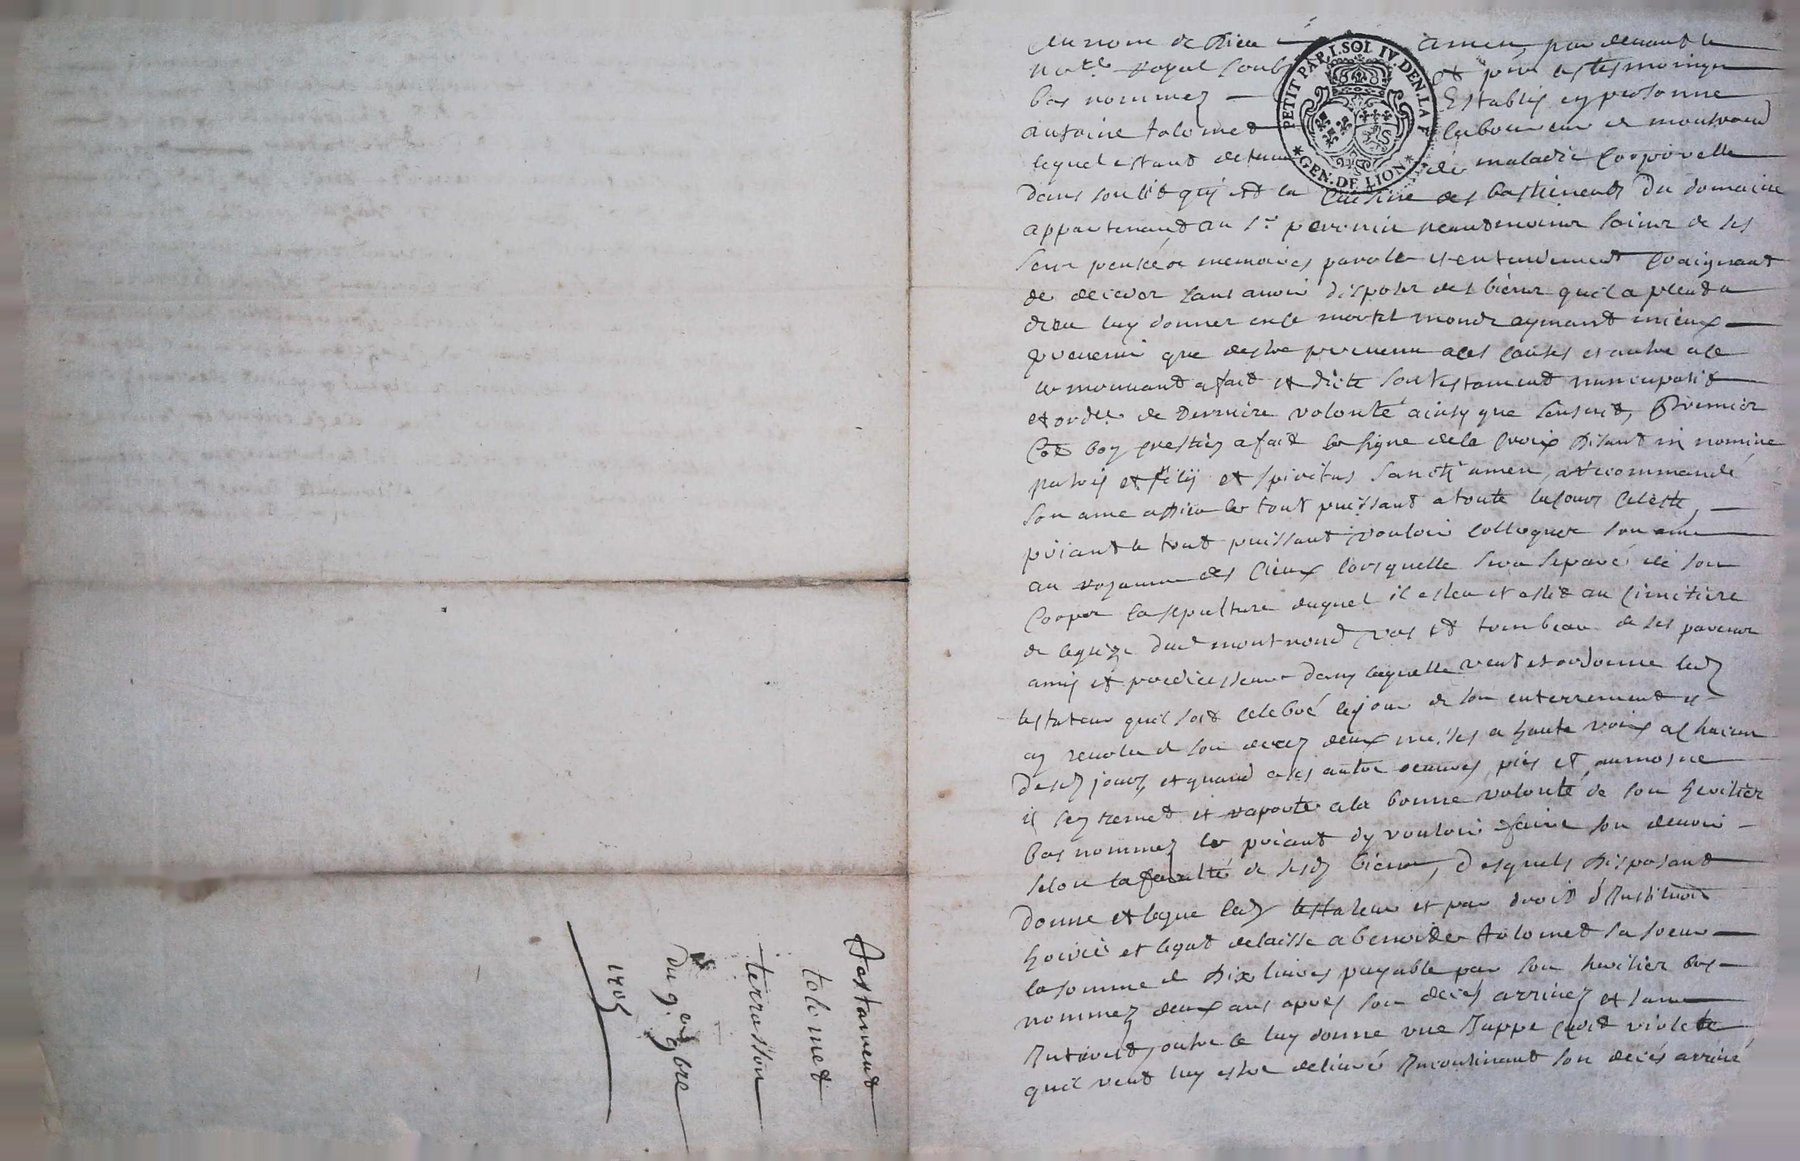 Testament
tolomet
terrasson
du 9.e 9bre
1705
PETIT PAP. I. SOL IV. DEN. LA F
GEN. DE LION
Au nom de Dieu amen, par devant le
not.re royal soub et pnts les tesmoings
bas nommez establis en personne
antoine tolomet laboureur de montrond
lequel estant detenu de maladie corporelle
dans son lit qui est en la cuisine des bastiments du domaine
appartenant au s.r peronin neantmoins sain de ses
sens pensée memoires parole et entendement craignant
de deceder sans avoir disposer des biens quil a pleut a
dieu luy donner en ce mortel monde aymant mieux
prevenir que destre prevenu a ces causes et autre a ce
le mouvant a fait et dicte son testament nuncupatif
et ord.ce de derniere volonté ainsy que sensuit, Premier
co.e bon chrestien a fait le signe de la croix disant in nomine
patris et filij et spiritus sancti amen, a recommandé
son ame a Dieu le tout puissant a toute la cour celeste,
priant le tout puissant vouloir colloquer son ame
au royaume des cieux lors quelle sera separé de son
corps la sepulture duquel il a esleu et eslit au cimetiere
de leglize dud montrond vas et tombeau de ses parens
amis et predecesseurs dans laquelle veut et ordonne led
testateur quil soit celebré le jour de son enterrement et
au revolu de son decez deux messes a haute voix a chacun
desd jours, et quand a ses autre oeuvres pies et aumosne
il sen remet et raporte a la bonne volonté de son heritier
bas nommez le priant dy vouloir faire son devoir
selon la faculté de sesd biens, desquels disposant
donne et legue led testateur et par droit d'Institution
hoirie et legat delaisse a benoite tolomet sa soeur
la somme de dix livres payable par son heritier bas
nommez deux ans apres son deces arrivez et sans
Interest, outre ce luy donne une Juppe violete
quil veut luy estre delivré Incontinant son deces arrivé